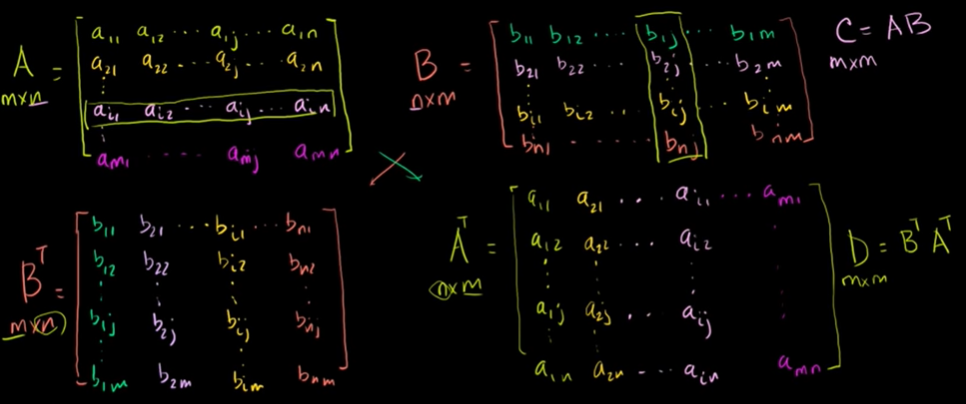 A = [ a11 a12 ... a1j ... a1n
m×n a21 a22 ... a2j ... a2n
ai1 ai2 ... aij ... ain
am1 ... amj amn ]
B = [ b11 b12 ... b1j ... b1m
n×m b21 b22 ... b2j ... b2m
bi1 bi2 ... bij ... bim
bn1 ... bnj bnm ]
C = AB
m×m
B^T = [ b11 b21 ... bi1 ... bn1
m×n b12 b22 bi2 bn2
b1j b2j bij bnj
b1m b2m bim bnm ]
A^T = [ a11 a21 ... ai1 ... am1
n×m a12 a22 ... ai2
a1j a2j ... aij
a1n a2n ... ain amn ]
D = B^T A^T
m×m